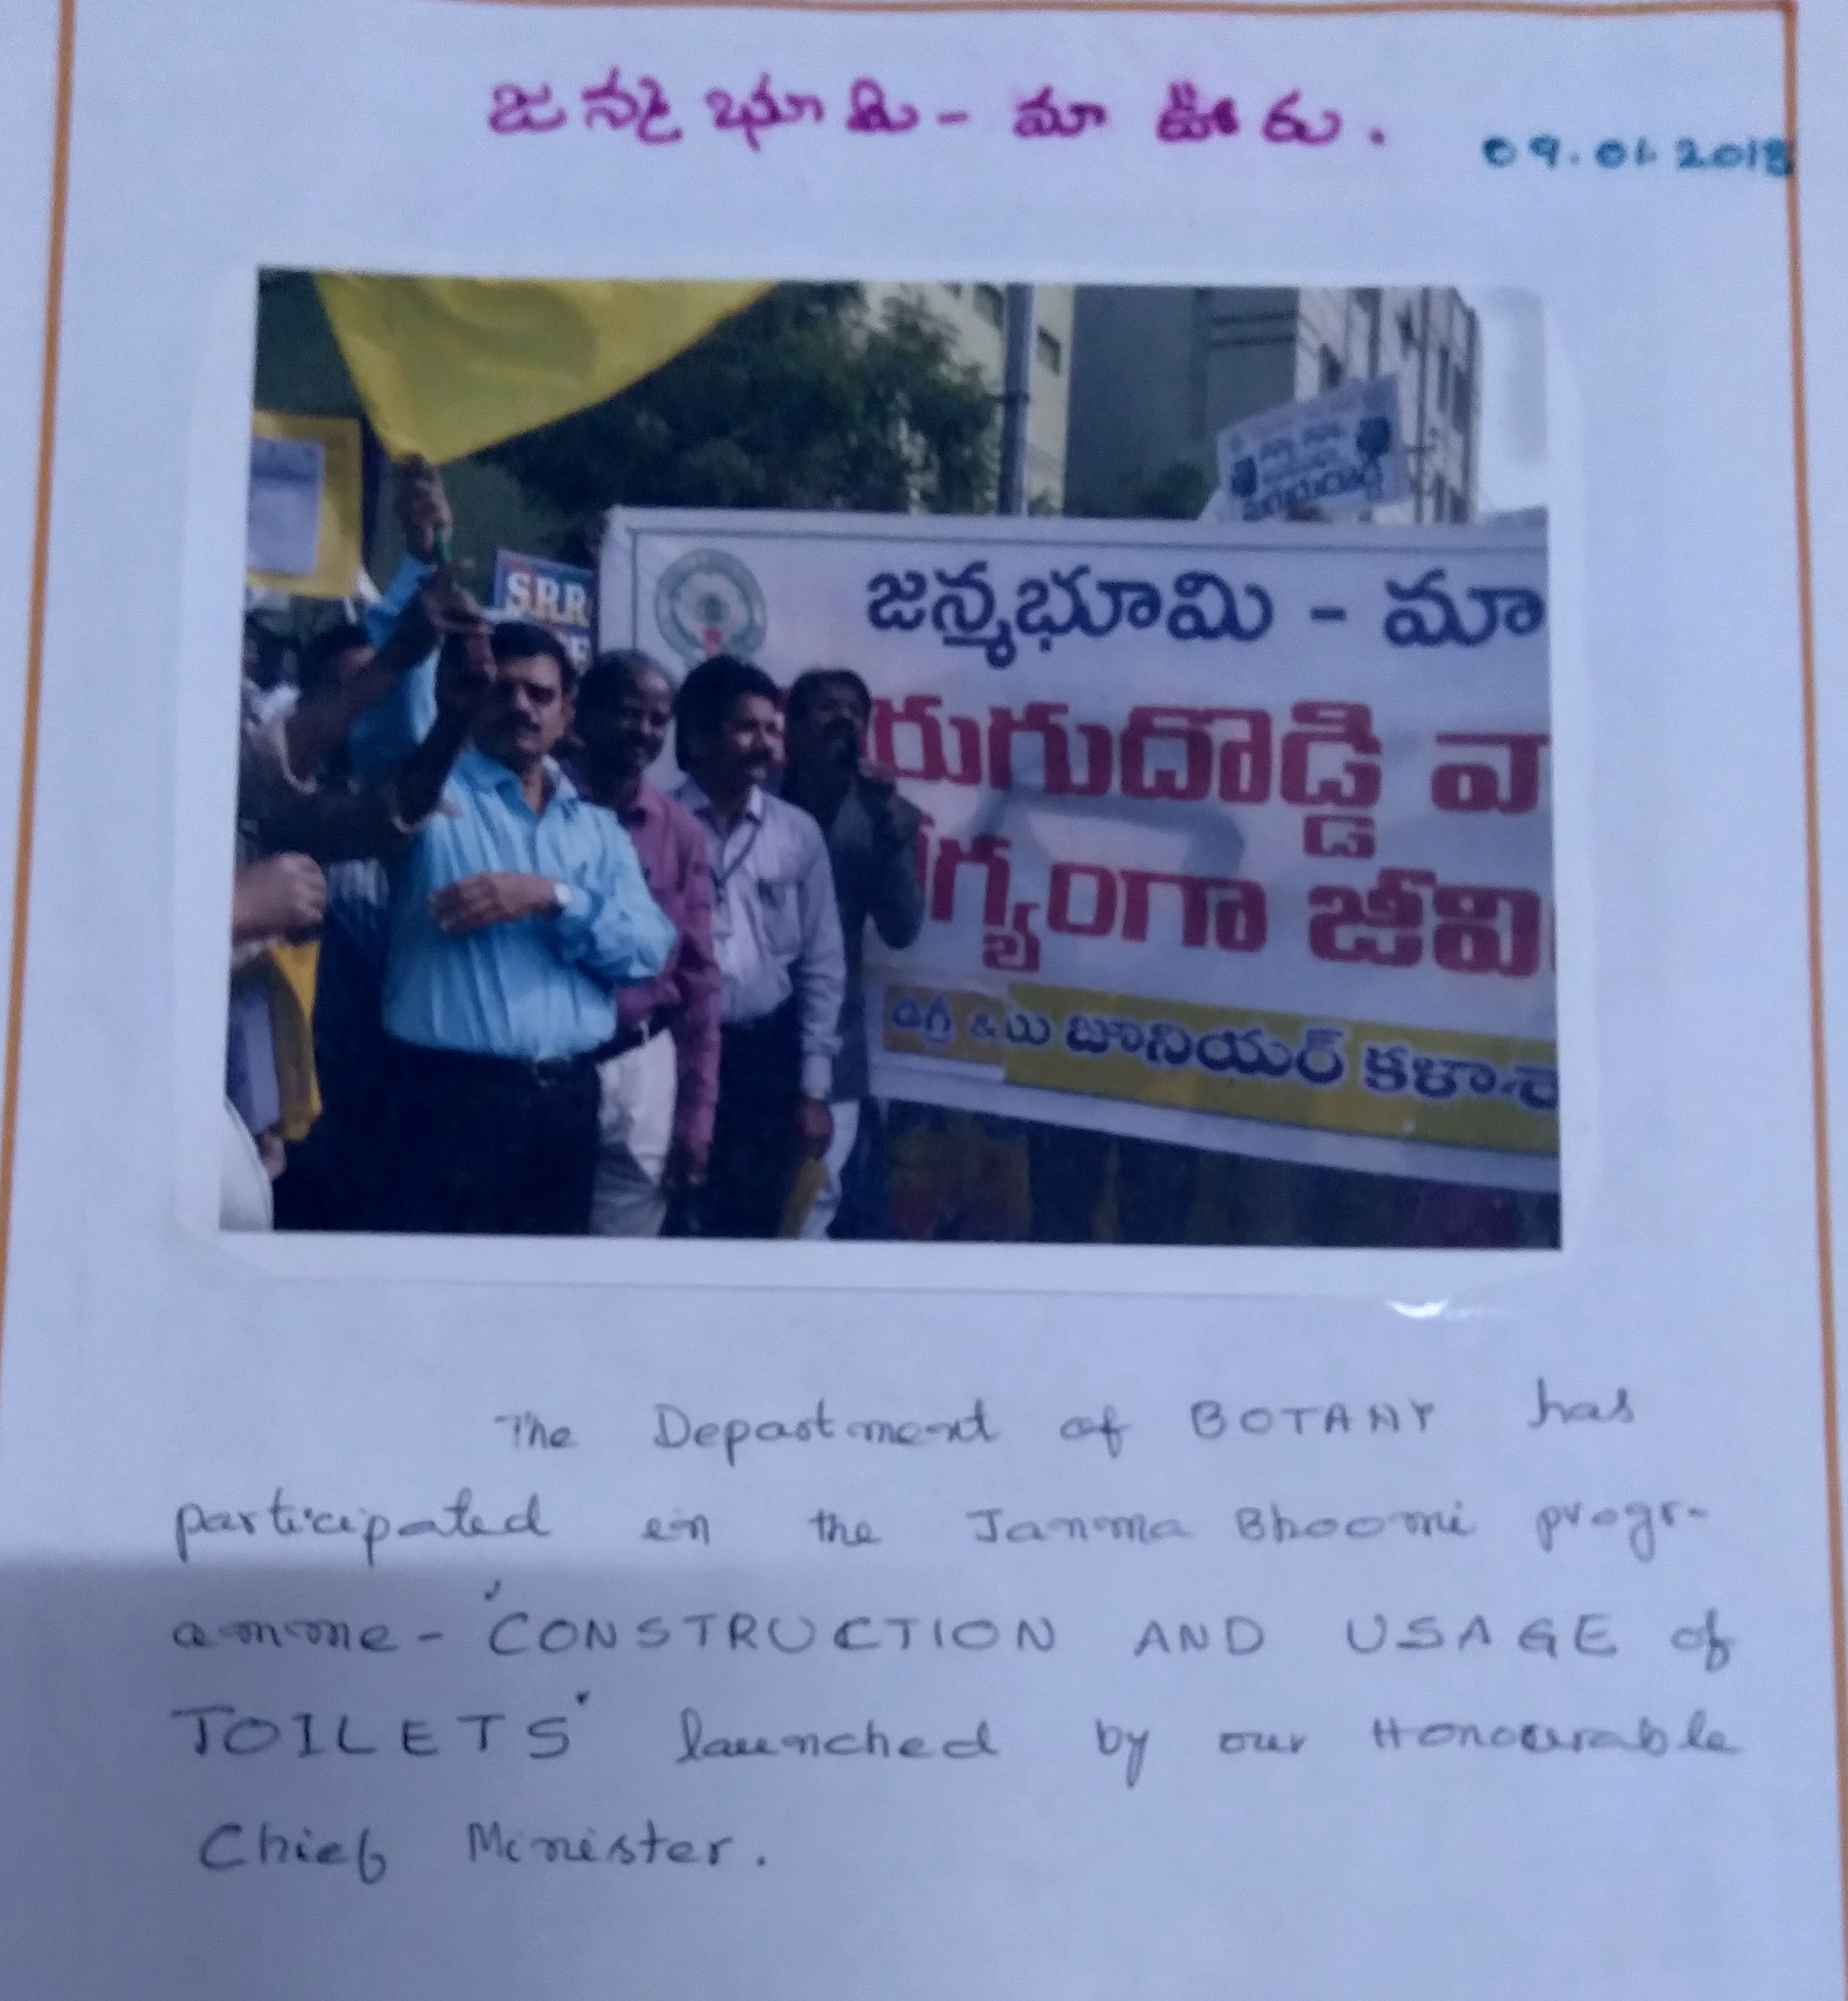 జన్మభూమి - మా ఊరు.
09.01.2018
SRR
జన్మభూమి - మా
రుగుదొడ్డి వా
గ్యంగా జీవి
డిగ్రీ & జూనియర్ కళాశా
The Department of BOTANY has
participated in the Janma Bhoomi progr-
amme - "CONSTRUCTION AND USAGE of
TOILETS" launched by our Honourable
Chief Minister.